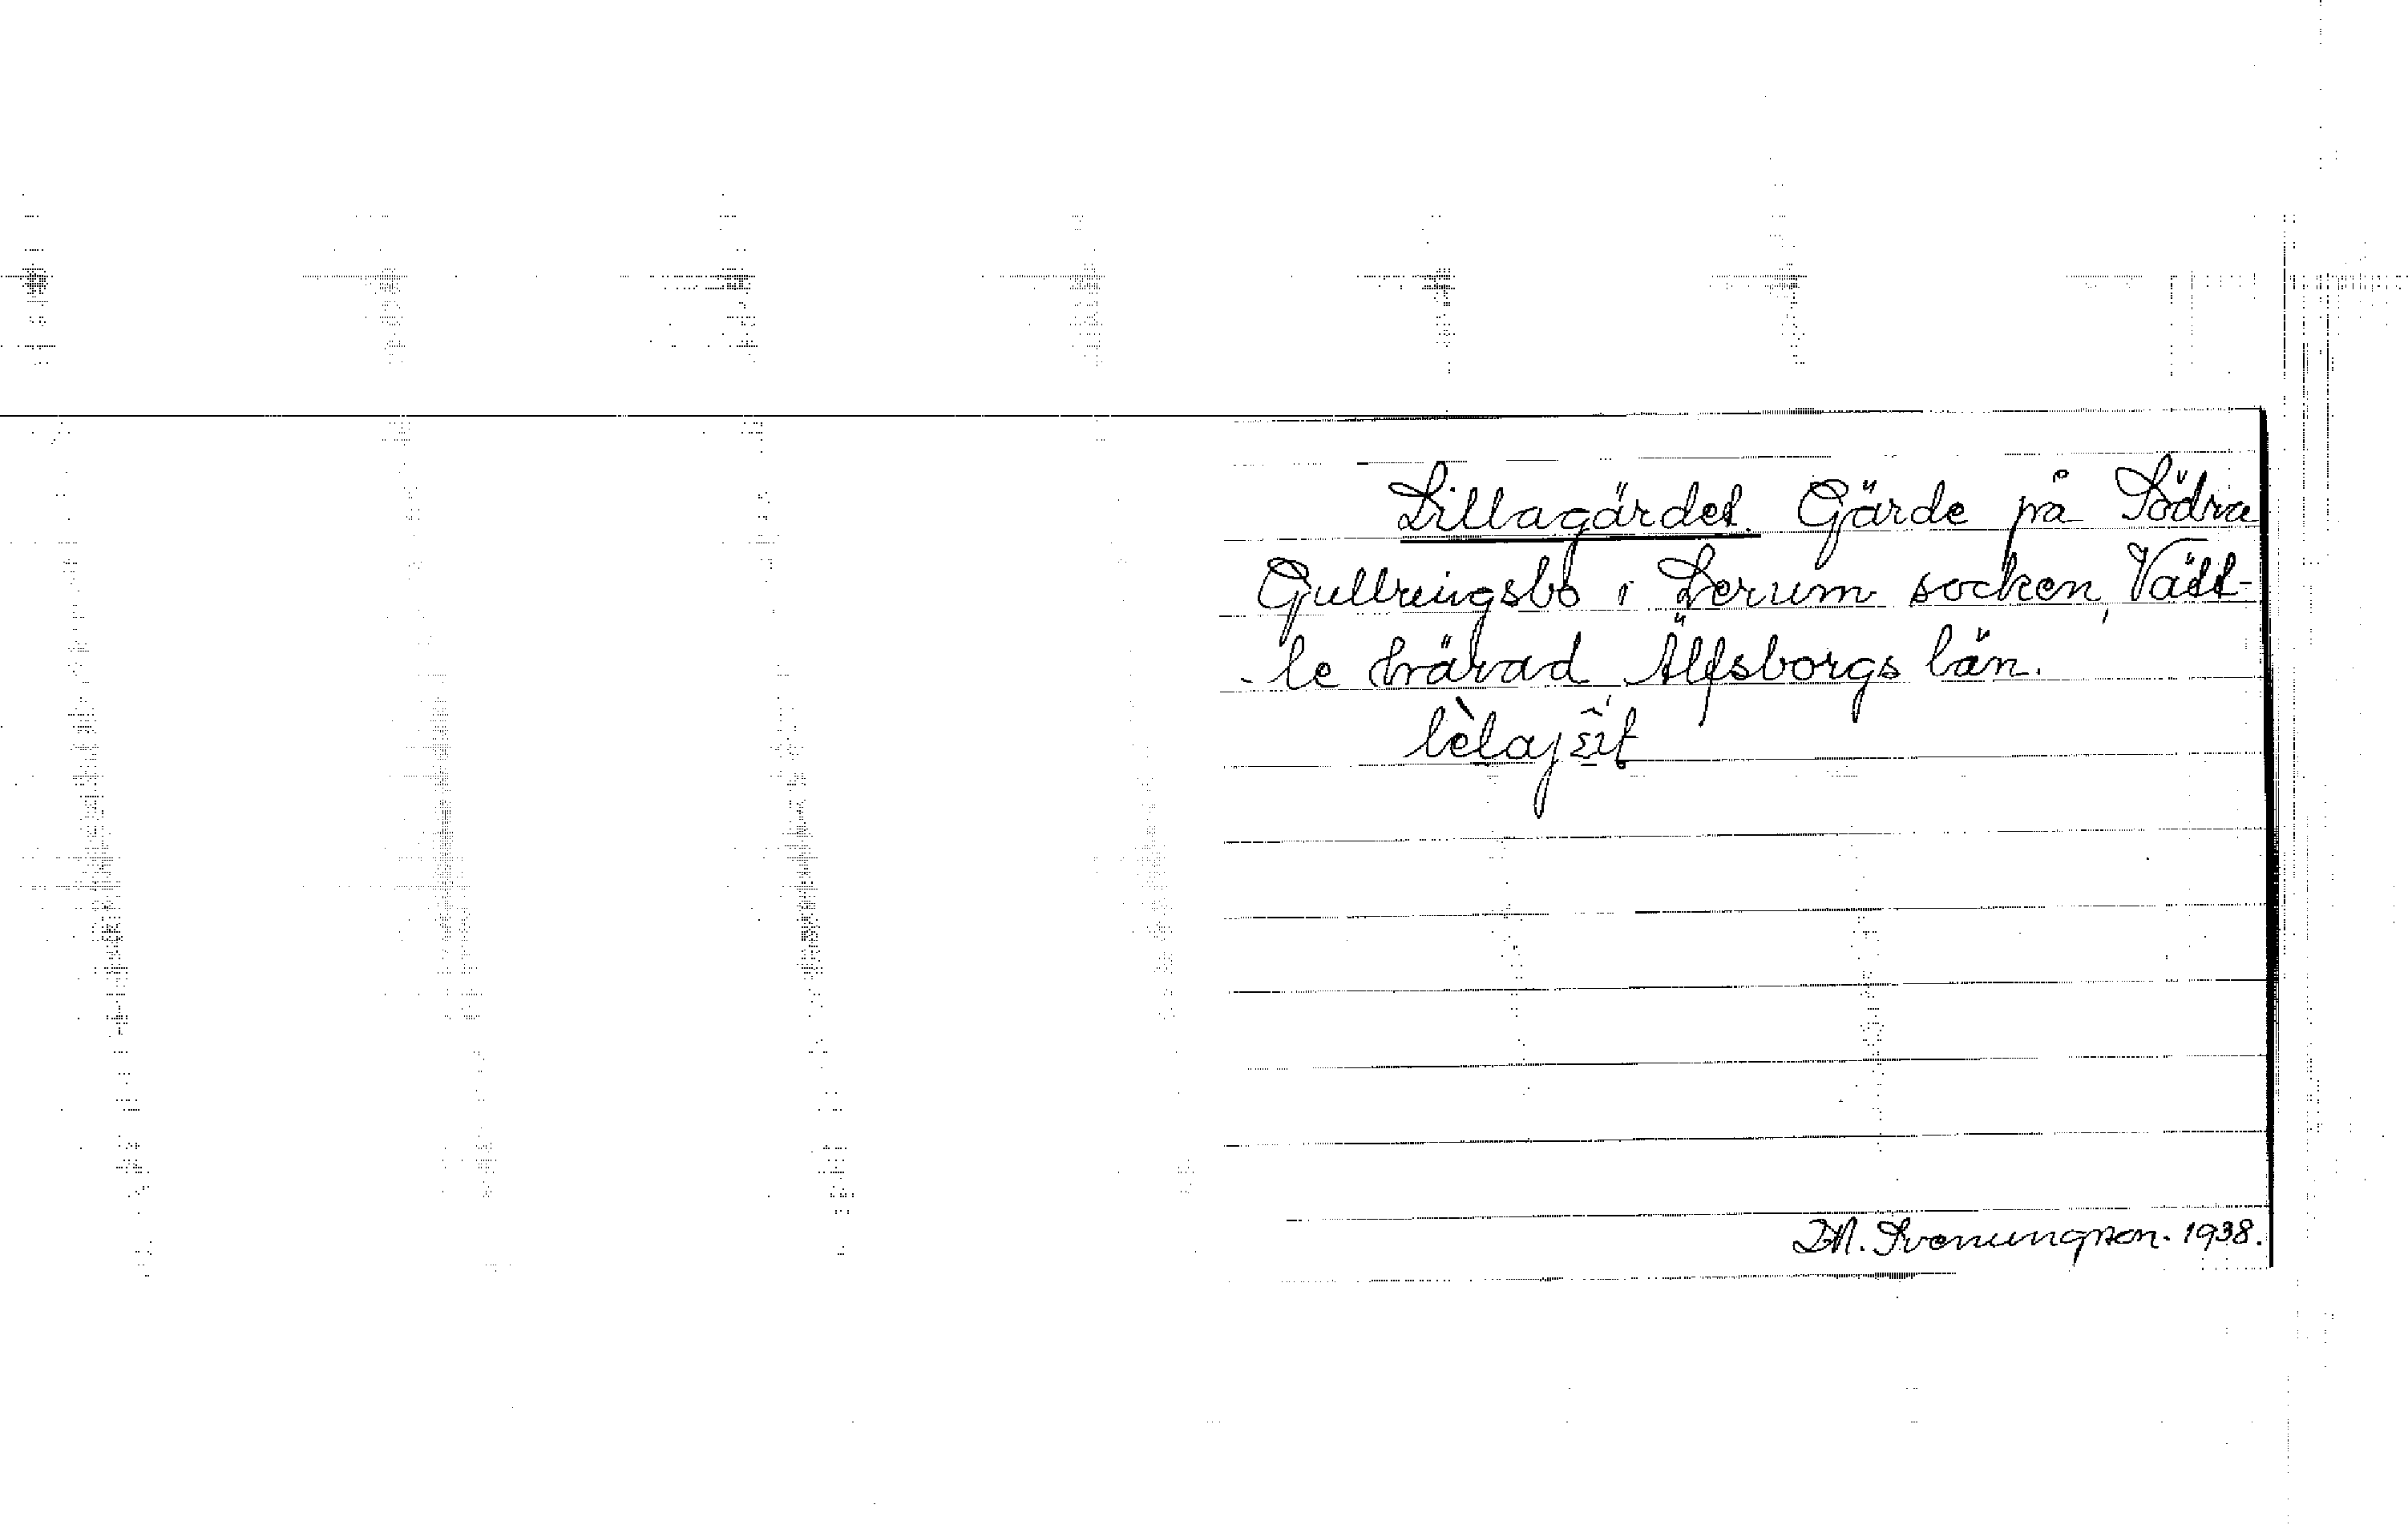 Lillagärdet. Gärde på Södra
Gullringsbo i Lerum socken, Vätt-
-le härad, Älfsborgs län.
D.M. Svenungson. 1938.